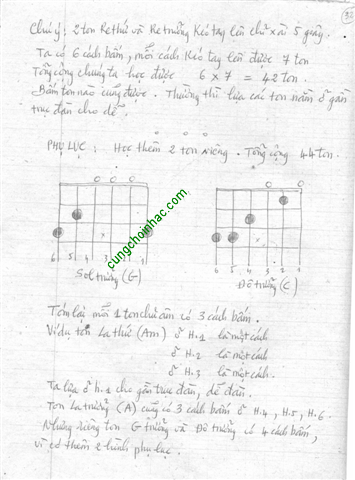 32
Chú ý : 2 ton Rethứ và Re trưởng kéo tay lên chỉ xài 5 giây.
Ta có 6 cách bấm, mỗi cách kéo tay lên được 7 ton
Tổng cộng chúng ta học được 6 x 7 = 42 ton.
Bấm ton nào cũng được. Thường thì lựa các ton nằm ở gần
trục đàn cho dễ.
PHỤ LỤC : Học thêm 2 ton riêng. Tổng cộng 44 ton.
6 5 4 3 2 1
6 5 4 3 2 1
Sol trưởng (G)
Đô trưởng (C)
cungchoinhac.com
Tóm lại mỗi 1 ton chủ âm có 3 cách bấm.
Ví dụ ton La thứ (Am) ở H.1 là một cách
ở H.2 là một cách
ở H.3 là một cách.
Ta lựa ở h.1 cho gần trục đàn, dễ đàn.
Ton La trưởng (A) cũng có 3 cách bấm ở H.4, H.5, H.6.
Nhưng riêng ton G trưởng và Đô trưởng có 4 cách bấm,
vì có thêm 2 hình phụ lục.